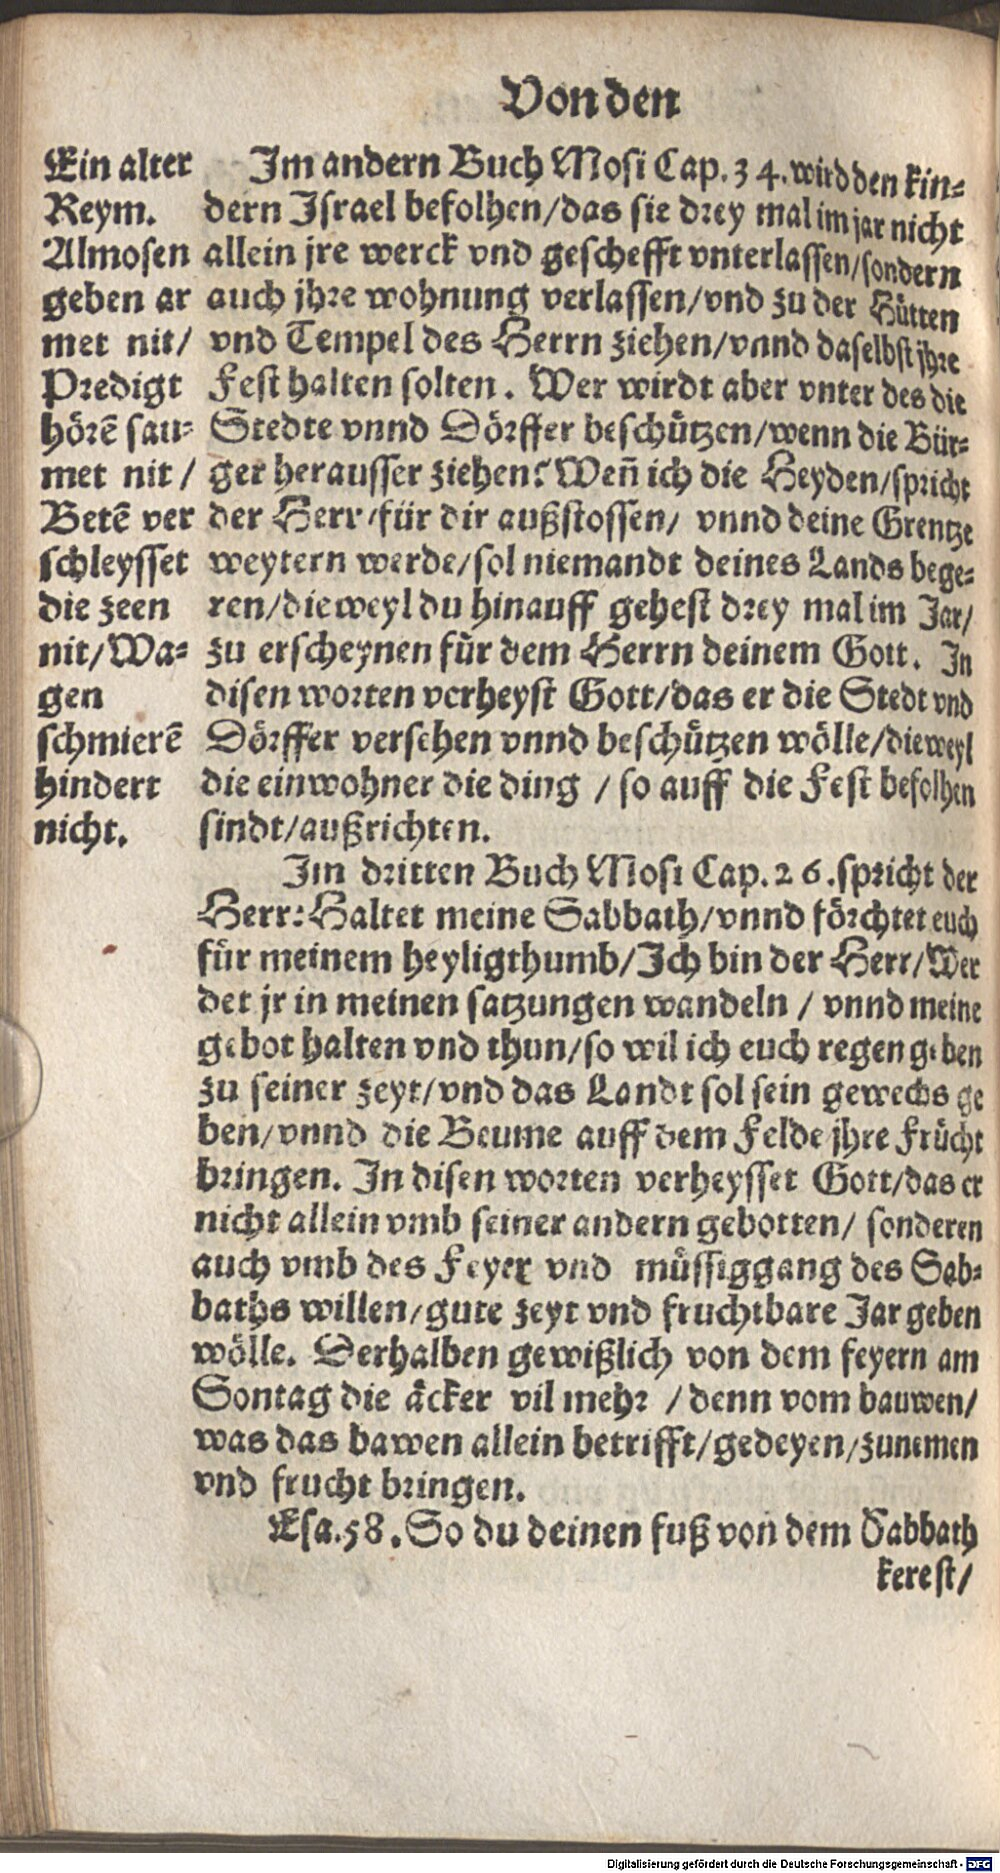 Von den
Ein alter
Reym.
Almosen
geben ar
met nit/
Predigt
hörē sau⸗
met nit/
Betē ver
schleysset
die zeen
nit/Wa⸗
gen
schmierē
hindert
nicht.
Im andern Buch Mosi Cap.34.wird den kin⸗
dern Israel befolhen/das sie drey mal im jar nicht
allein jre werck vnd geschefft vnterlassen/sondern
auch jhre wohnung verlassen/vnd zu der Hütten
vnd Tempel des Herrn ziehen/vnnd daselbst jhre
Fest halten solten. Wer wirdt aber vnter des die
Stedte vnnd Dörffer beschützen/wenn die Bür⸗
ger herausser ziehen? Weñ ich die Heyden/spricht
der Herr/für dir außstossen/ vnnd deine Grentze
weytern werde/sol niemandt deines Lands bege⸗
ren/dieweyl du hinauff gehest drey mal im Jar/
zu erscheynen für dem Herrn deinem Gott. In
disen worten verheyst Gott/das er die Stedt vnd
Dörffer versehen vnnd beschützen wölle/dieweyl
die einwohner die ding / so auff die Fest befolhen
sindt/außrichten.
Im dritten Buch Mosi Cap.26.spricht der
Herr: Haltet meine Sabbath/vnnd förchtet euch
für meinem heyligthumb/Ich bin der Herr/Wer
det jr in meinen satzungen wandeln / vnnd meine
gebot halten vnd thun/so wil ich euch regen geben
zu seiner zeyt/vnd das Landt sol sein gewechs ge
ben/vnnd die Beume auff dem Felde jhre Frücht
bringen. In disen worten verheysset Gott/das er
nicht allein vmb seiner andern gebotten/ sonderen
auch vmb des Feyer vnd müssiggang des Sab⸗
baths willen/gute zeyt vnd fruchtbare Jar geben
wölle. Derhalben gewißlich von dem feyern am
Sontag die äcker vil mehr /denn vom bauwen/
was das bawen allein betrifft/gedeyen/zunemen
vnd frucht bringen.
Esa.58. So du deinen fuß von dem Sabbath
kerest/
Digitalisierung gefördert durch die Deutsche Forschungsgemeinschaft - DFG